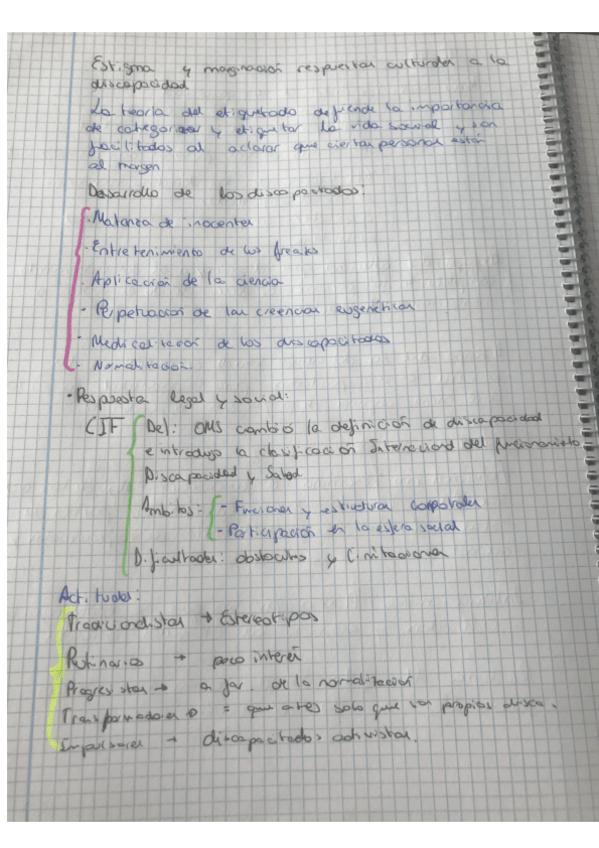 Estigma y marginación respuestas culturales a la
discapacidad
La teoría del etiquetado defiende la importancia
de categorizar y etiquetar la vida social y son
facilitados al aclarar que ciertas personas están
al margen
Desarrollo de los discapacitados:
· Matanza de inocentes
· Entretenimiento de los freaks
· Aplicación de la ciencia
· Perpetuación de las creencias eugenéticas
· Medicalización de los discapacitados
· Normalización
· Respuesta legal y social:
CIF Def: OMS cambió la definición de discapacidad
e introdujo la clasificación Internacional del funcionamiento
Discapacidad y Salud
Ámbitos: - Funciones y estructura corporales
- Participación en la esfera social
Dificultades: obstáculos y limitaciones
Actitudes:
Tradicionalistas → Estereotipos
Rutinarios → poco interés
Progresistas → a fav. de la normalización
Transformadores → = que antes solo que son propios disca.
Impulsores → discapacitados activistas.